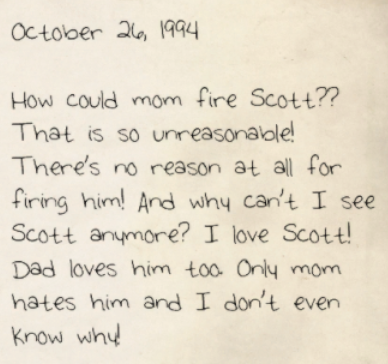 October 26, 1994
How could mom fire Scott??
That is so unreasonable!
There's no reason at all for
firing him! And why can't I see
Scott anymore? I love Scott!
Dad loves him too. Only mom
hates him and I don't even
know why!